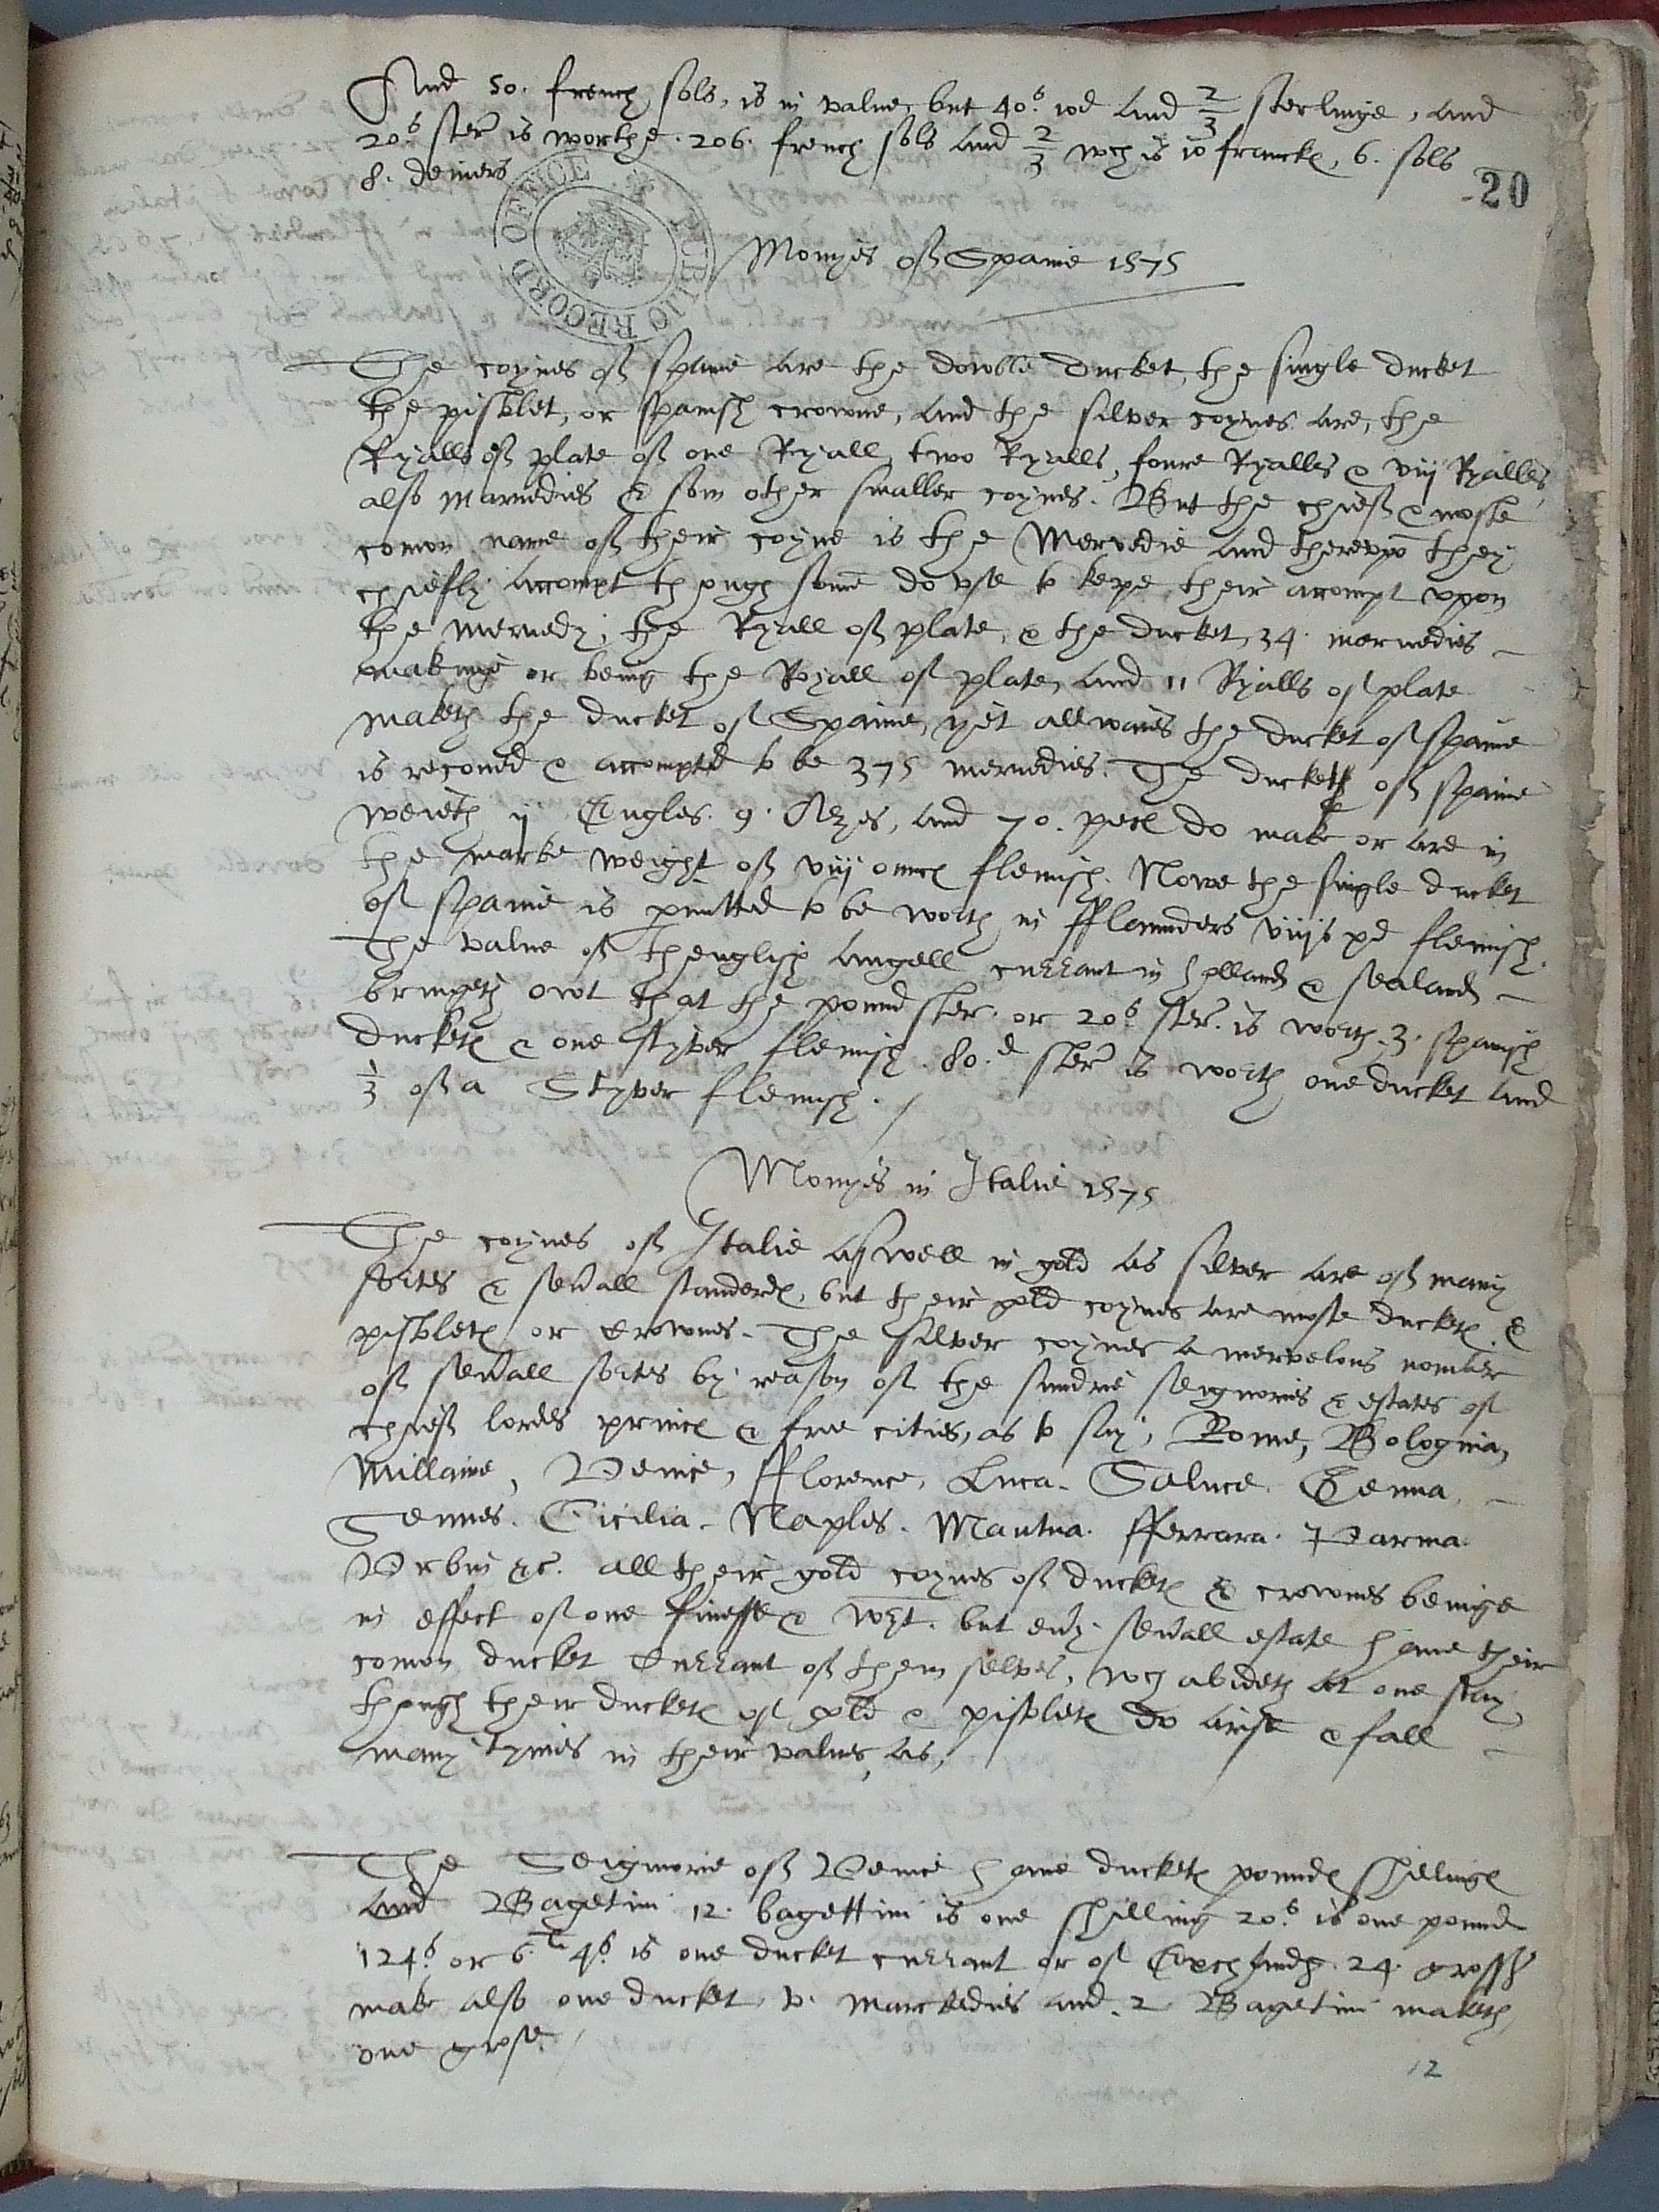 And 50. french sols, is in value but 40s. 10d and 2/3 sterlinge, and
20s ster is worthe. 206. french sols and 2/3 wch is 10 franckes, 6. sols
8. deniers
20
PUBLIC RECORD OFFICE
Monyes of Spaine 1575
The coynes of spaine are the dowble Ducket, the single ducket
the pistolet, or spanish crowne, and the silver coynes are, the
Ryalls of plate of one Ryall, two Ryalls, foure Ryalles & viij Ryalles
also Marvedies & som other smaller coynes. But the chief & moste
comon name of their coyne is the Mervedie and therevpō they
chiefly accompt though some do vse to kepe their accompt vpon
the mervedy, the Ryall of plate, & the ducket, 34. mervedies
makinge or being the Royall of plate, and 11 Ryalls of plate
maketh the ducket of Spaine, yet allwaies the ducket of spaine
is reconed & accompted to be 375 mervedies. The duckett of spaine
weieth ij Engles. 9. Azes, and 70. peces do make or are in
the marke weight of viij ounces flemish. Nowe the single ducket
of spaine is pmitted to be worth in fflaunders viijs xd flemish.
The value of thenglish angell currant in holland & sealand
bringeth owt that the pound ster. or 20s. ster. is worth. 3. spanish
duckets & one styver flemish. 80.d ster is worth one ducket and
1/3 of a Styver flemish. /
Monyes in Italie 1575
The coynes of Italie aswell in gold as silver are of many
sortes & seuall standerds, but their gold coynes are moste duckets. &
pistolets or Crownes. The silver coynes a mervelous nomber
of seuall sortes by reason of the sundrie seignories & estates of
chief lordes princes & free cities, as to say, Rome, Bolognia,
Millaine, Venice, fflorence, Luca. Saluce. Genua.
Sennes. Cicilia. Naples. Mantua. fferrara. Parma.
Vrbin &c. all their gold coynes of duckets & crownes beinge
in effect of one finesse & wgt. but euy seuall estate haue their
comon ducket Currant of them selves, wch abideth at one stay
though their duckets of gold & pistolets do arise & fall
many tymes in their values, as,
The Seignorie of Venice haue duckets pounds shillings
and Bagetini 12. bagettini is one shilling 20s. is one pound
124s. or 6.li 4s. is one ducket currant or of Exchandg. 24. grosse
make also one ducket, v. Marckedies and. 2 Bagetini maketh
one grose.
12